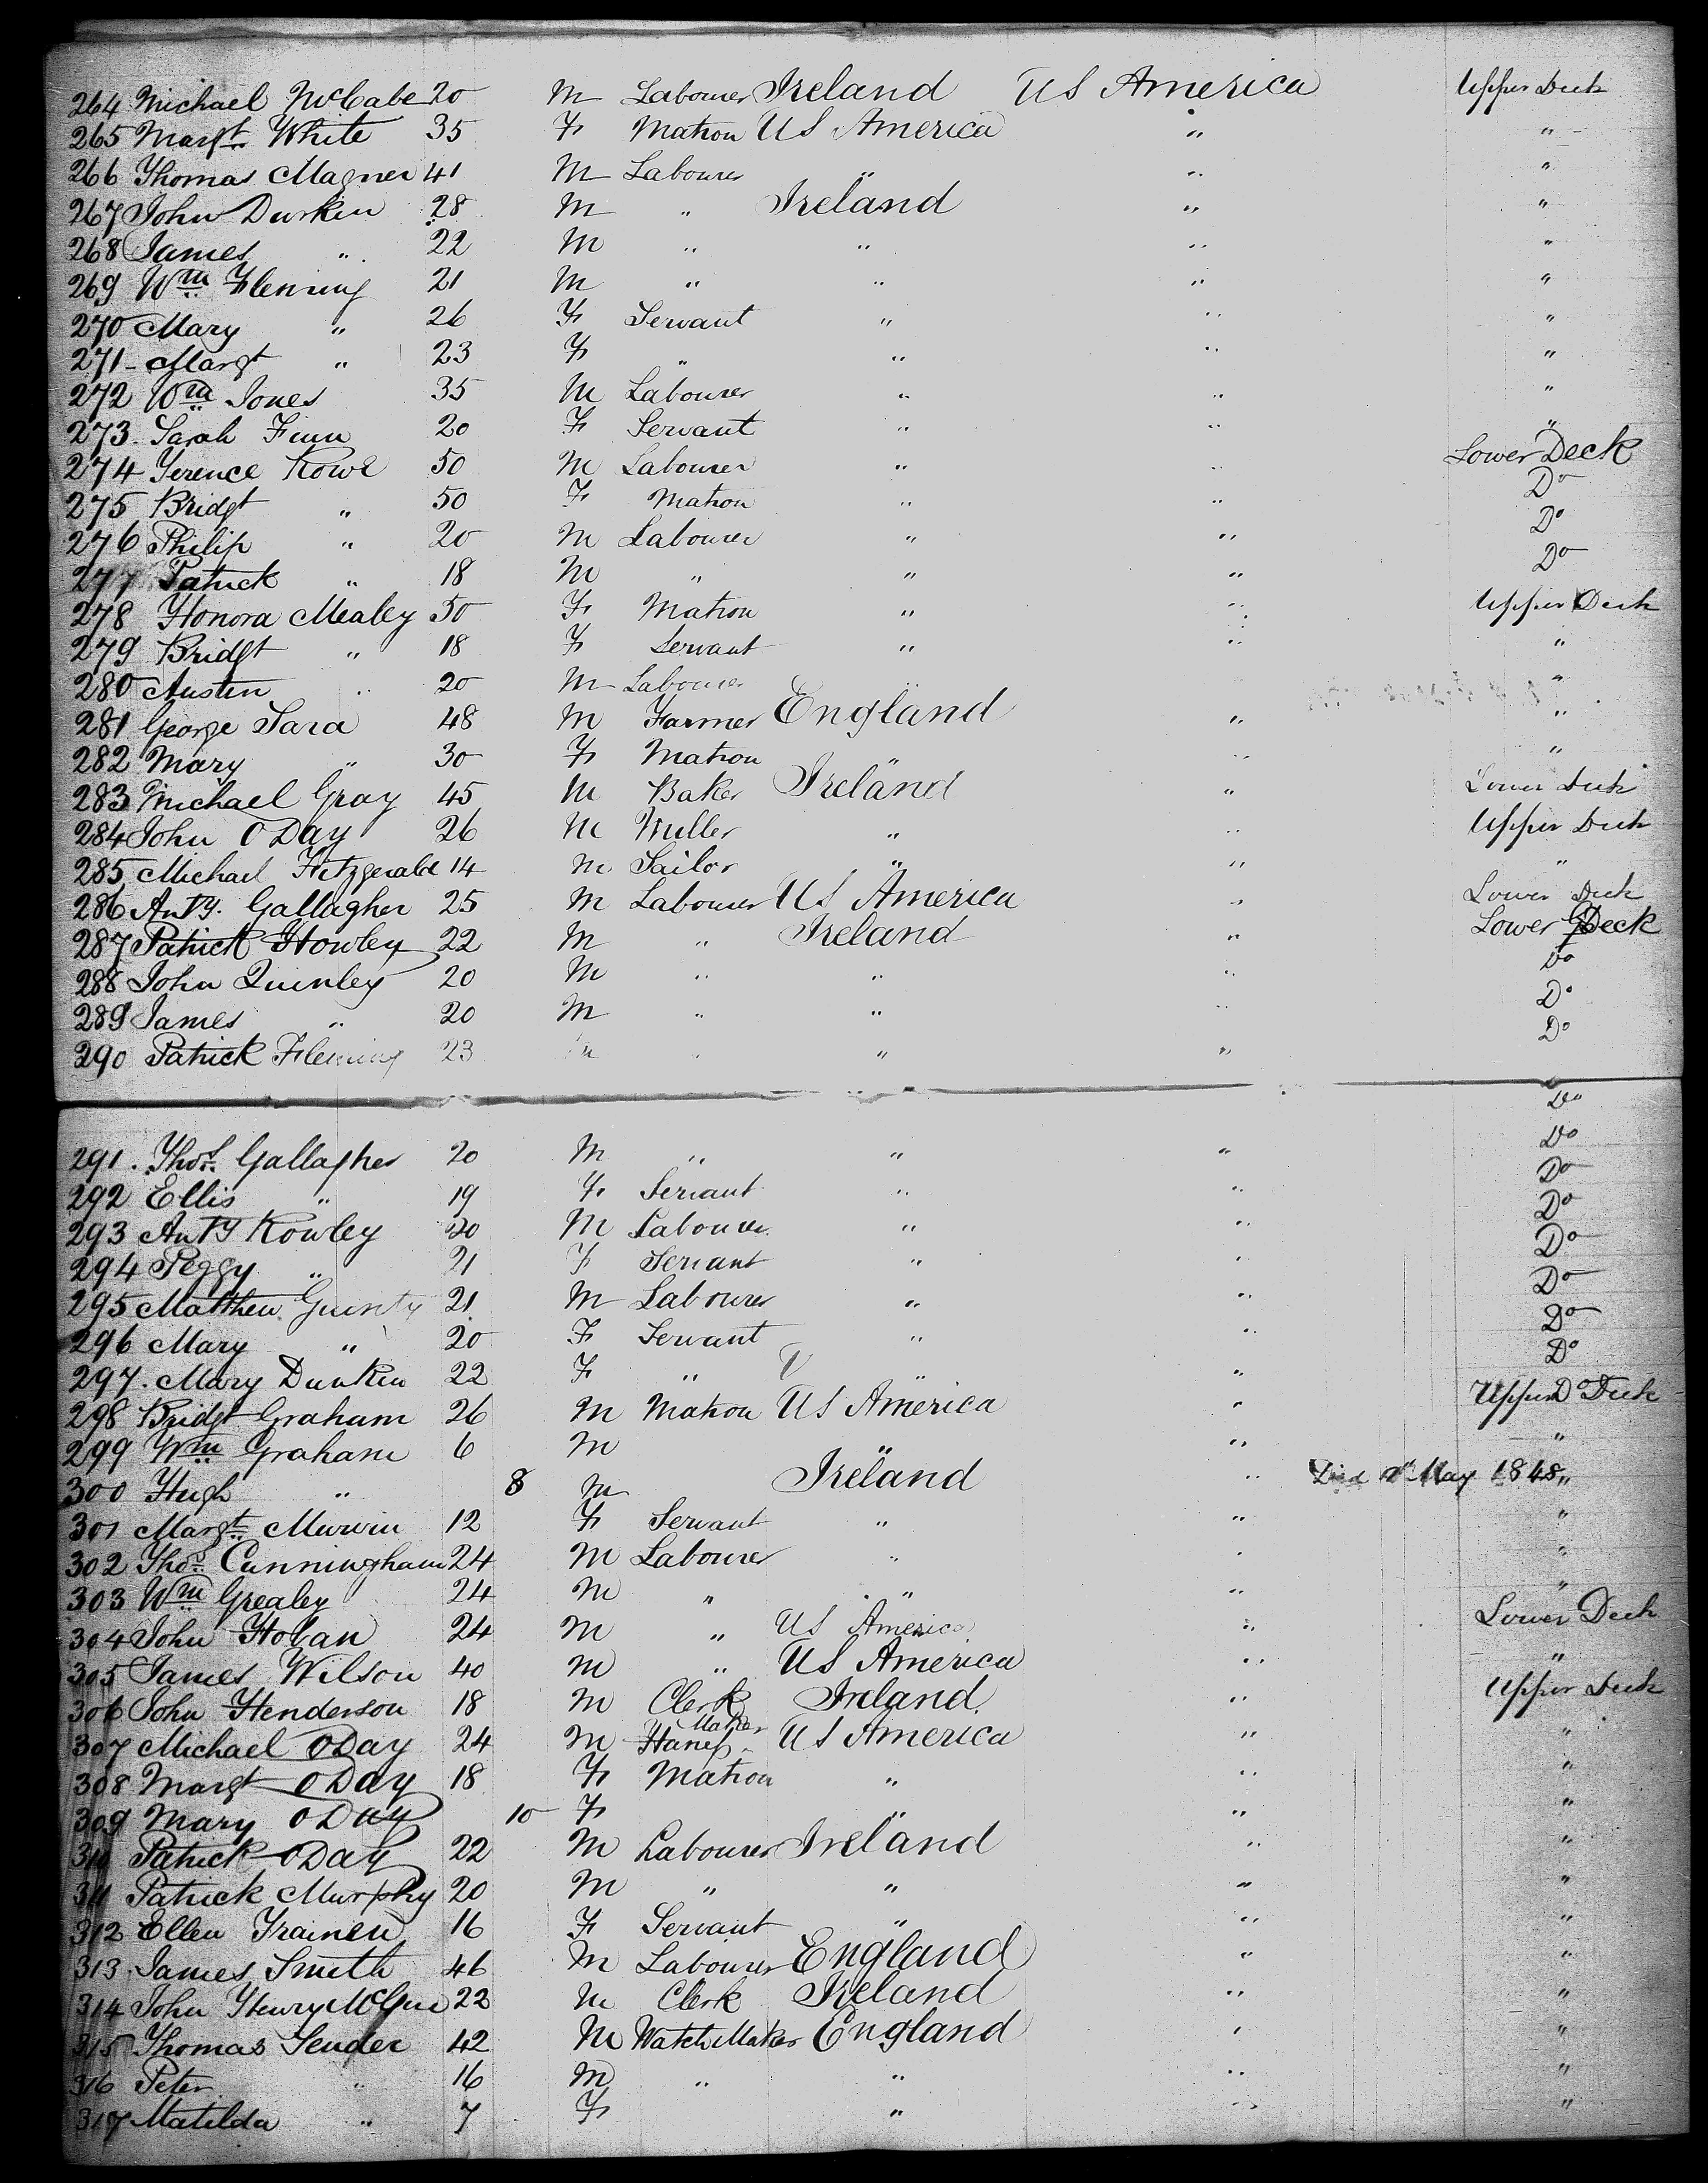 264 Michael McCabe 20 M Labourer Ireland US America Upper Deck
265 Margt White 35 F Matron US America " "
266 Thomas Magner 41 M Labourer " " "
267 John Durkin 28 M " Ireland " "
268 James " 22 M " " " "
269 Wm Fleming 21 M " " " "
270 Mary " 26 F Servant " " "
271 Margt " 23 F " " " "
272 Wm Jones 35 M Labourer " " "
273 Sarah Finn 20 F Servant " " "
274 Terence Rowe 50 M Labourer " " Lower Deck
275 Bridgt " 50 F Matron " " Do
276 Philip " 20 M Labourer " " Do
277 Patrick " 18 M " " " Do
278 Honora Mealey 50 F Matron " " Upper Deck
279 Bridgt " 18 F Servant " " "
280 Austin " 20 M Labourer " "
281 George Sara 48 M Farmer England " "
282 Mary " 30 F Matron " " "
283 Michael Gray 45 M Baker Ireland " Lower Deck
284 John O Day 26 M Miller " " Upper Deck
285 Michael Fitzgerald 14 M Sailor " " "
286 Anty. Gallagher 25 M Labourer US America " Lower Deck
287 Patrick Howley 22 M " Ireland " Lower Deck
288 John Quinley 20 M " " " Do
289 James " 20 M " " " Do
290 Patrick Fleming 23 M " " " Do
Do
291 Thos Gallagher 20 M " " " Do
292 Ellis " 19 F Servant " " Do
293 Anty Rowley 20 M Labourer " " Do
294 Peggy " 21 F Servant " " Do
295 Matthew Guinty 21 M Labourer " " Do
296 Mary " 20 F Servant " " Do
297 Mary Dunken 22 F " " " Do
298 Bridgt Graham 26 M Matron US America " Upper Deck
299 Wm Graham 6 M " " "
300 Hugh " 8 M Ireland " Died May 1848 "
301 Margt Murvin 12 F Servant " " "
302 Thos Cunningham 24 M Labourer " " "
303 Wm Grealey 24 M " " " "
304 John Hoban 24 M " US America " Lower Deck
305 James Wilson 40 M " US America " "
306 John Henderson 18 M Clerk Ireland " Upper Deck
307 Michael O Day 24 M Harnes Maker US America " "
308 Margt O Day 18 F Matron " " "
309 Mary O Day 10 F " " "
310 Patrick O Day 22 M Labourer Ireland " "
311 Patrick Murphy 20 M " " " "
312 Ellen Trainen 16 F Servant " " "
313 James Smith 46 M Labourer England " "
314 John Henry 22 M Clerk Ireland " "
315 Thomas Sender 42 M Watch Maker England " "
316 Peter " 16 M " " " "
317 Matilda " 7 F " " "